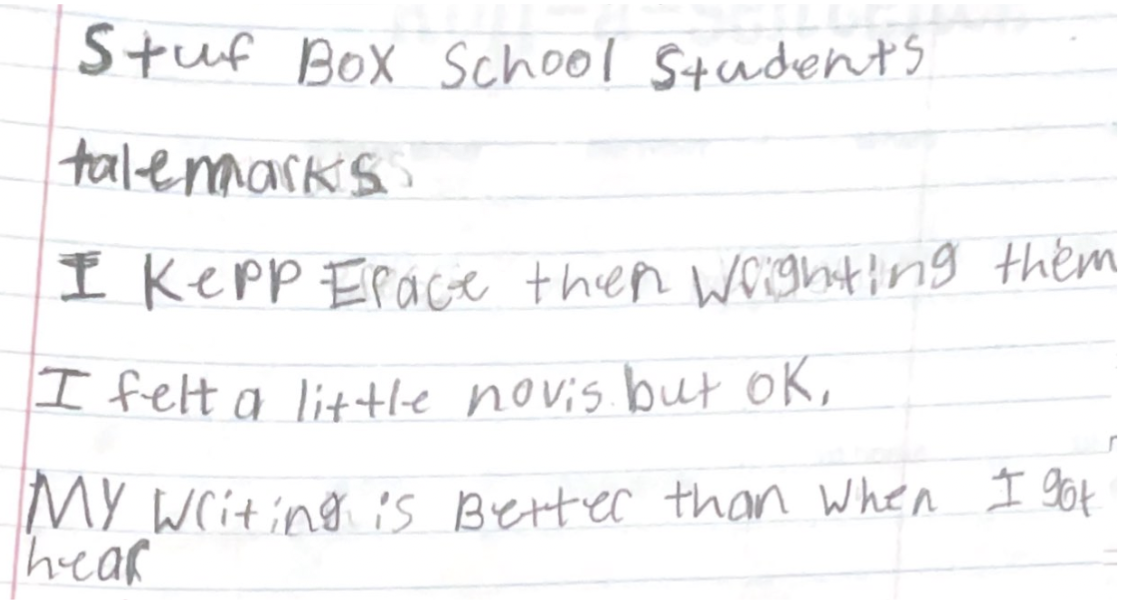 Stuf Box School Students
talemarks
I Kepp Erace then Wrighting them
I felt a little novis but OK.
MY Writing is Better than when I got
hear